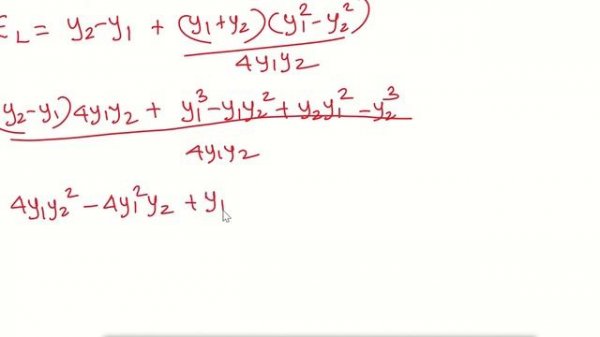 E_L = y₂-y₁ + (y₁+y₂)(y₁²-y₂²) / 4y₁y₂
y₂-y₁)4y₁y₂ + y₁³-y₁y₂²+y₂y₁²-y₂³ / 4y₁y₂
4y₁y₂²-4y₁²y₂ +y₁